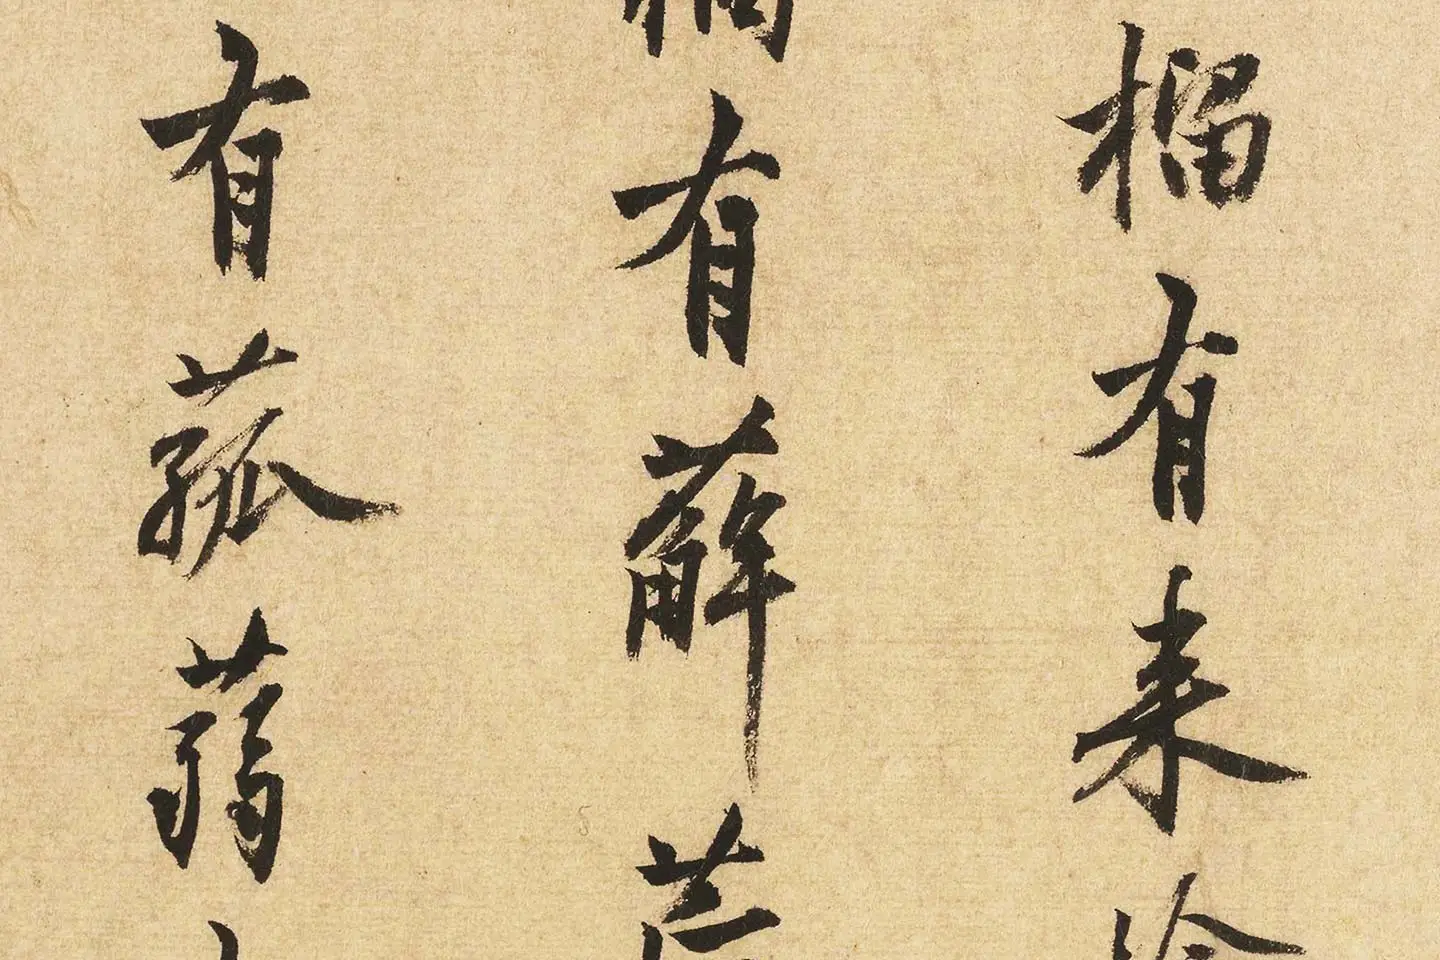 榴有来
有薜
有菰蒻